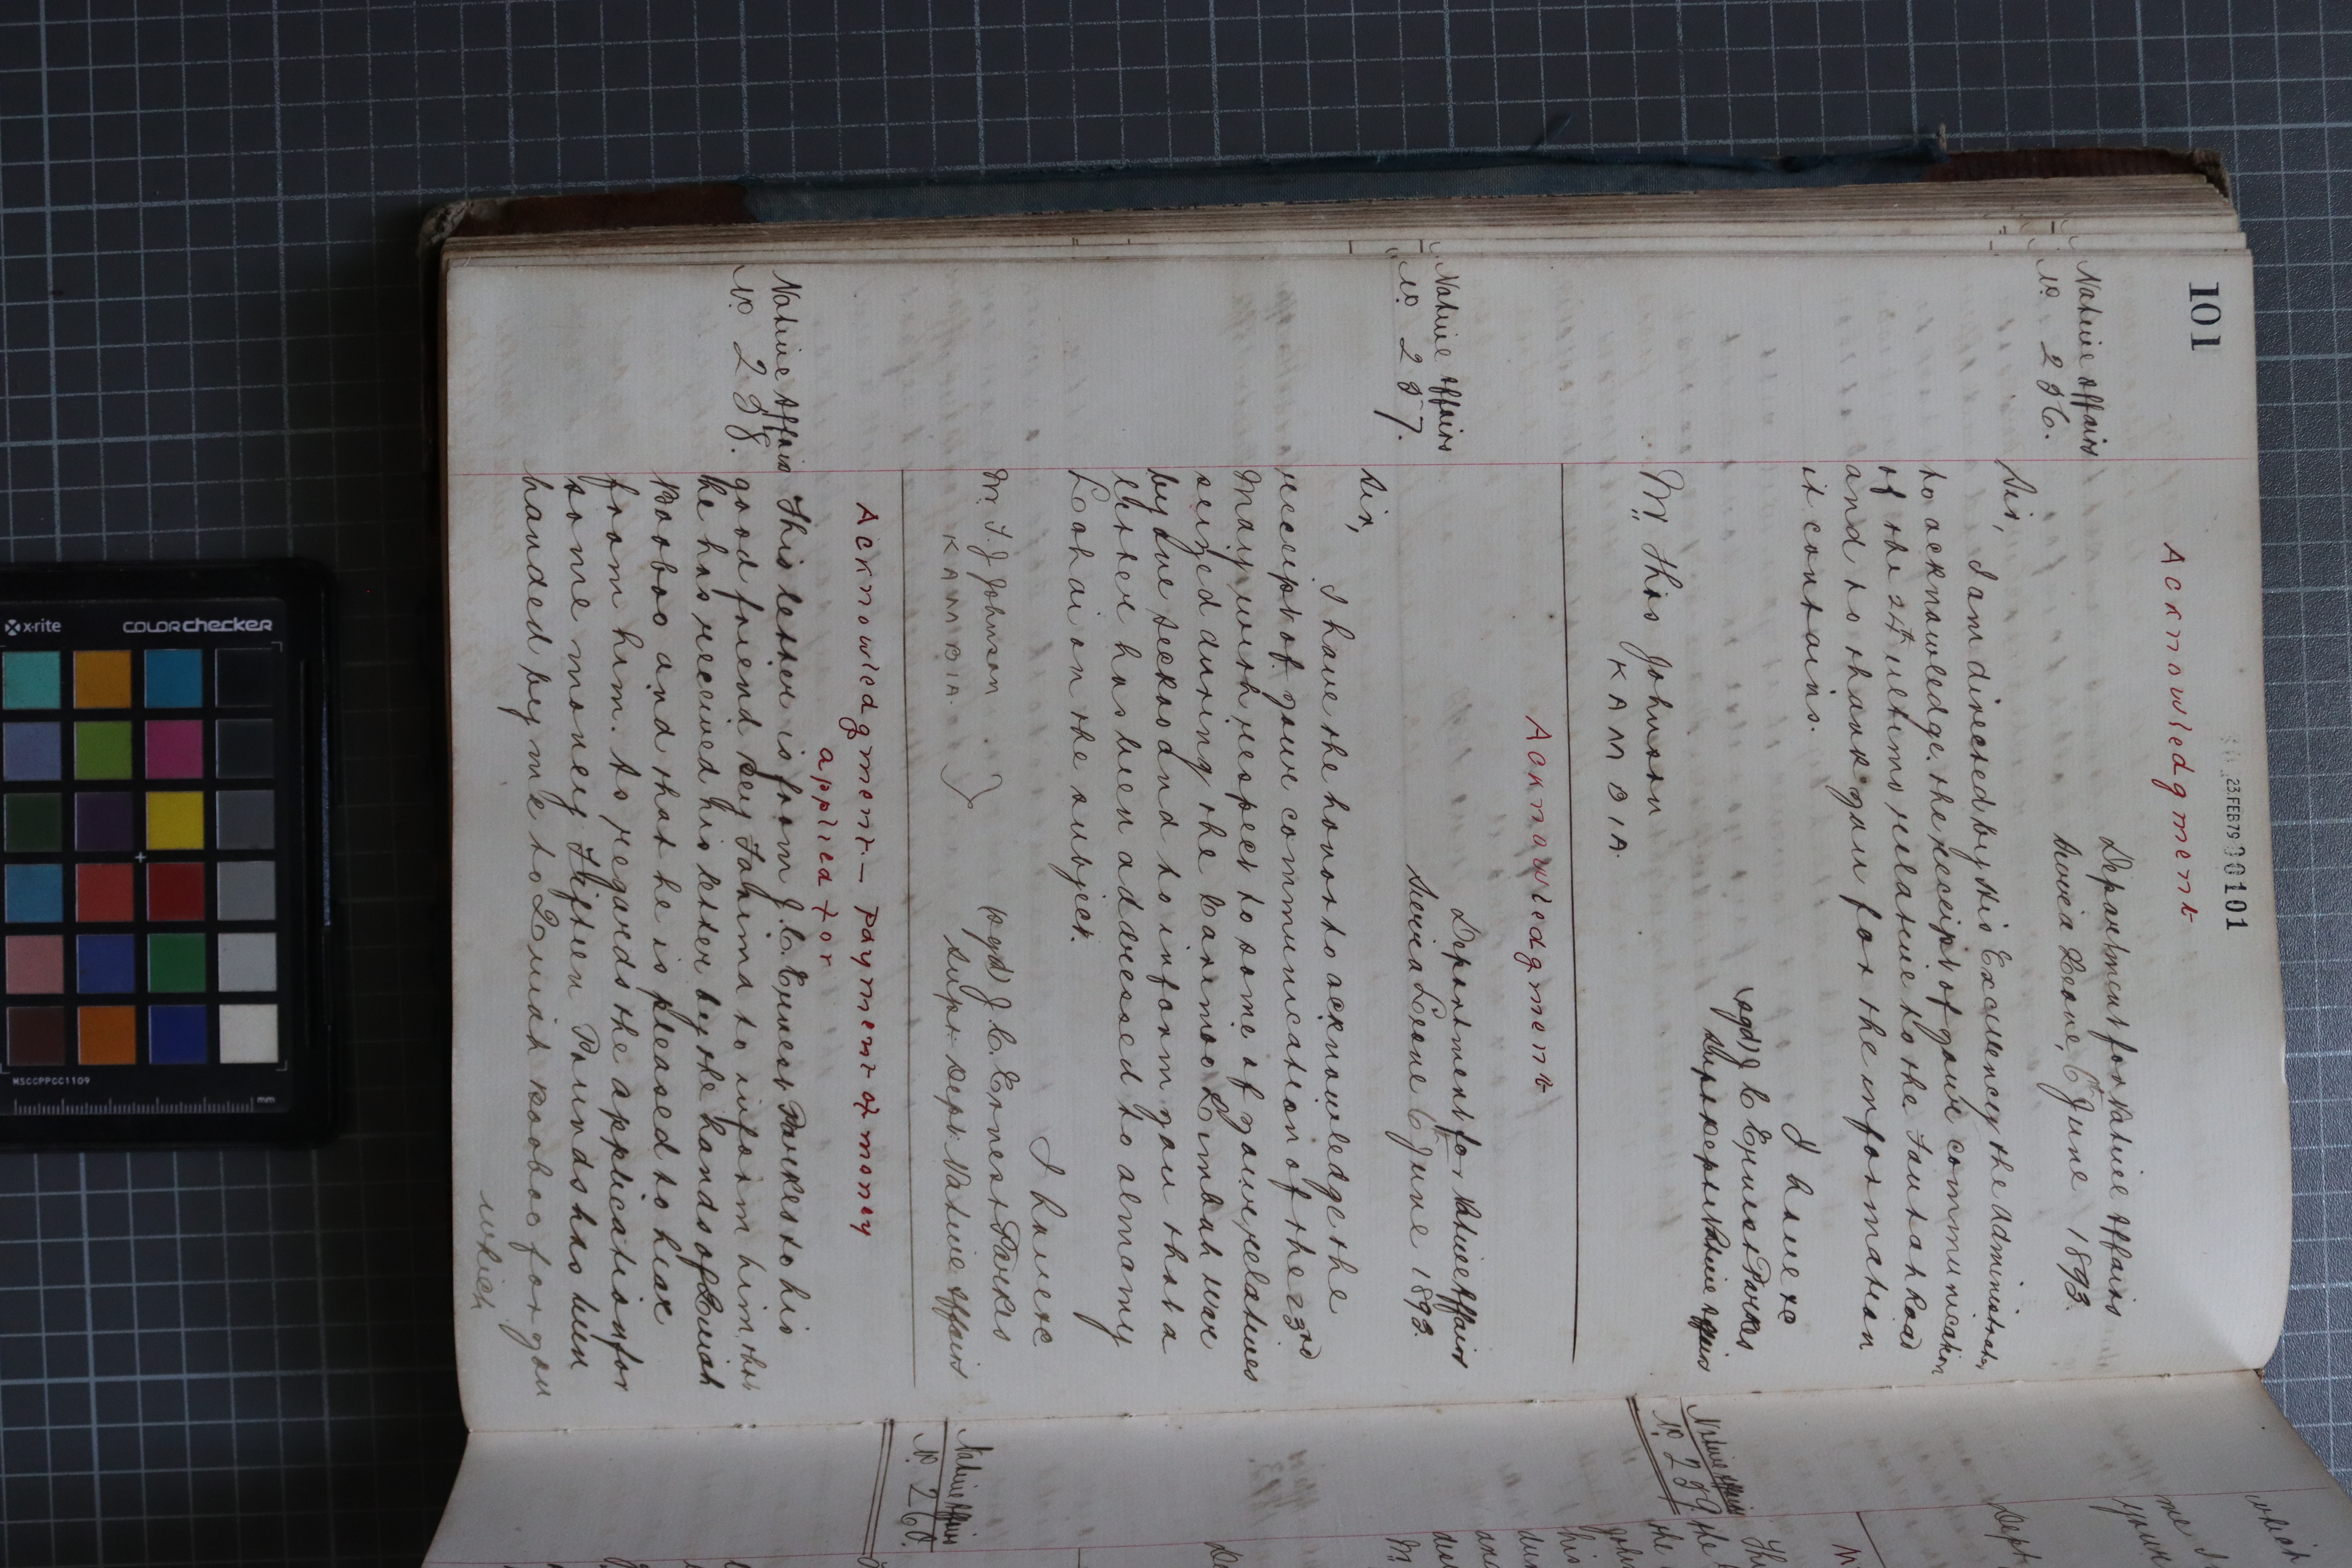 101
23.FEB79 00101
Acknowledgment
Native Affairs
No. 256.
Department for Native Affairs
Sierra Leone, 6 June 1893.
Sir,
I am directed by His Excellency the Administrator
to acknowledge the receipt of your communication
of the ultimo relative to the Road
and to thank you for the information
it contains.
I have &c
(sgd) J C Ernest Parkes
Supt Dept Native Affairs
Mr Thos Johnson
KAMBIA.
Acknowledgment
Native Affairs
No. 257.
Department for Native Affairs
Sierra Leone 6 June 1893.
Sir,
I have the honor to acknowledge the
receipt of your communication of the 23rd
May with respect to some of your relatives
seized during the Carimoo Limbah war
by the Seckoo and to inform you that a
letter has been addressed to Almamy
Lahai on the subject.
I have &c
(sgd) J. C. Ernest Parkes
Supt: Dept: Native Affairs
Mr. T. J Johnson
KAMBIA.
Acknowledgment - Payment of money
applied for
Native Affairs
No. 258.
This letter is from J. C. Ernest Parkes to his
good friend Sey Fahima to inform him that
he has received his letter by the hands of Quiah
Booboo and that he is pleased to hear
from him. As regards the application for
some money Fifteen Pounds has been
handed by me to Quiah Booboo for you
which
Native Affairs
No. 259
Native Affairs
No. 260.
which
me
your
Dept
This
the
his
M.
x-rite
colorchecker
MSCCPPCC1109
mm